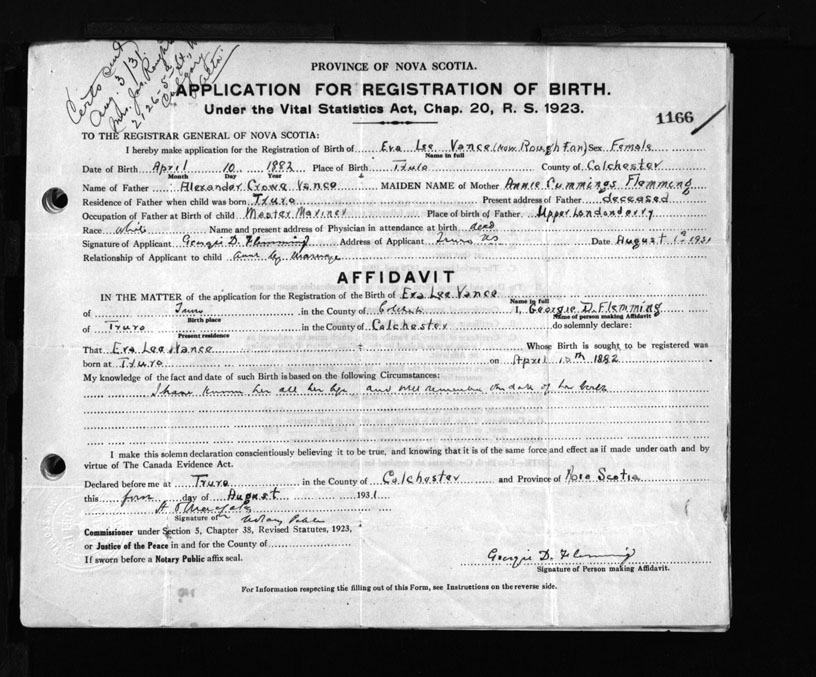 Certs sent
Aug. 3/31.
Mrs. Jas. Rough
2126-5 St. W
Calgary
Alta.
PROVINCE OF NOVA SCOTIA.
APPLICATION FOR REGISTRATION OF BIRTH.
Under the Vital Statistics Act, Chap. 20, R. S. 1923.
1166
TO THE REGISTRAR GENERAL OF NOVA SCOTIA:
I hereby make application for the Registration of Birth of Eva Lee Vance (Now Roughton) Sex Female
Name in full
Date of Birth April 10 1882 Place of Birth Truro County of Colchester
Month Day Year
Name of Father Alexander Crowe Vance MAIDEN NAME of Mother Annie Cummings Flemming
Residence of Father when child was born Truro Present address of Father deceased
Occupation of Father at Birth of child Master Mariner Place of birth of Father Upper Londonderry
Race white Name and present address of Physician in attendance at birth dead
Signature of Applicant Georgie D. Flemming Address of Applicant Truro NS Date August 1st 1931
Relationship of Applicant to child Aunt by marriage
AFFIDAVIT
IN THE MATTER of the application for the Registration of the Birth of Eva Lee Vance
Name in full
of Truro in the County of Colch I, Georgie D. Flemming
Birth place Name of person making Affidavit
of Truro in the County of Colchester do solemnly declare:
Present residence
That Eva Lee Vance Whose Birth is sought to be registered was
born at Truro on April 10th 1882
My knowledge of the fact and date of such Birth is based on the following Circumstances:
I have known her all her life and well remember the date of her birth
I make this solemn declaration conscientiously believing it to be true, and knowing that it is of the same force and effect as if made under oath and by
virtue of The Canada Evidence Act.
Declared before me at Truro in the County of Colchester and Province of Nova Scotia
this first day of August 1931
Signature of Notary Public
Commissioner under Section 5, Chapter 38, Revised Statutes, 1923,
or Justice of the Peace in and for the County of
If sworn before a Notary Public affix seal.
Georgie D. Flemming
Signature of Person making Affidavit.
For Information respecting the filling out of this Form, see Instructions on the reverse side.